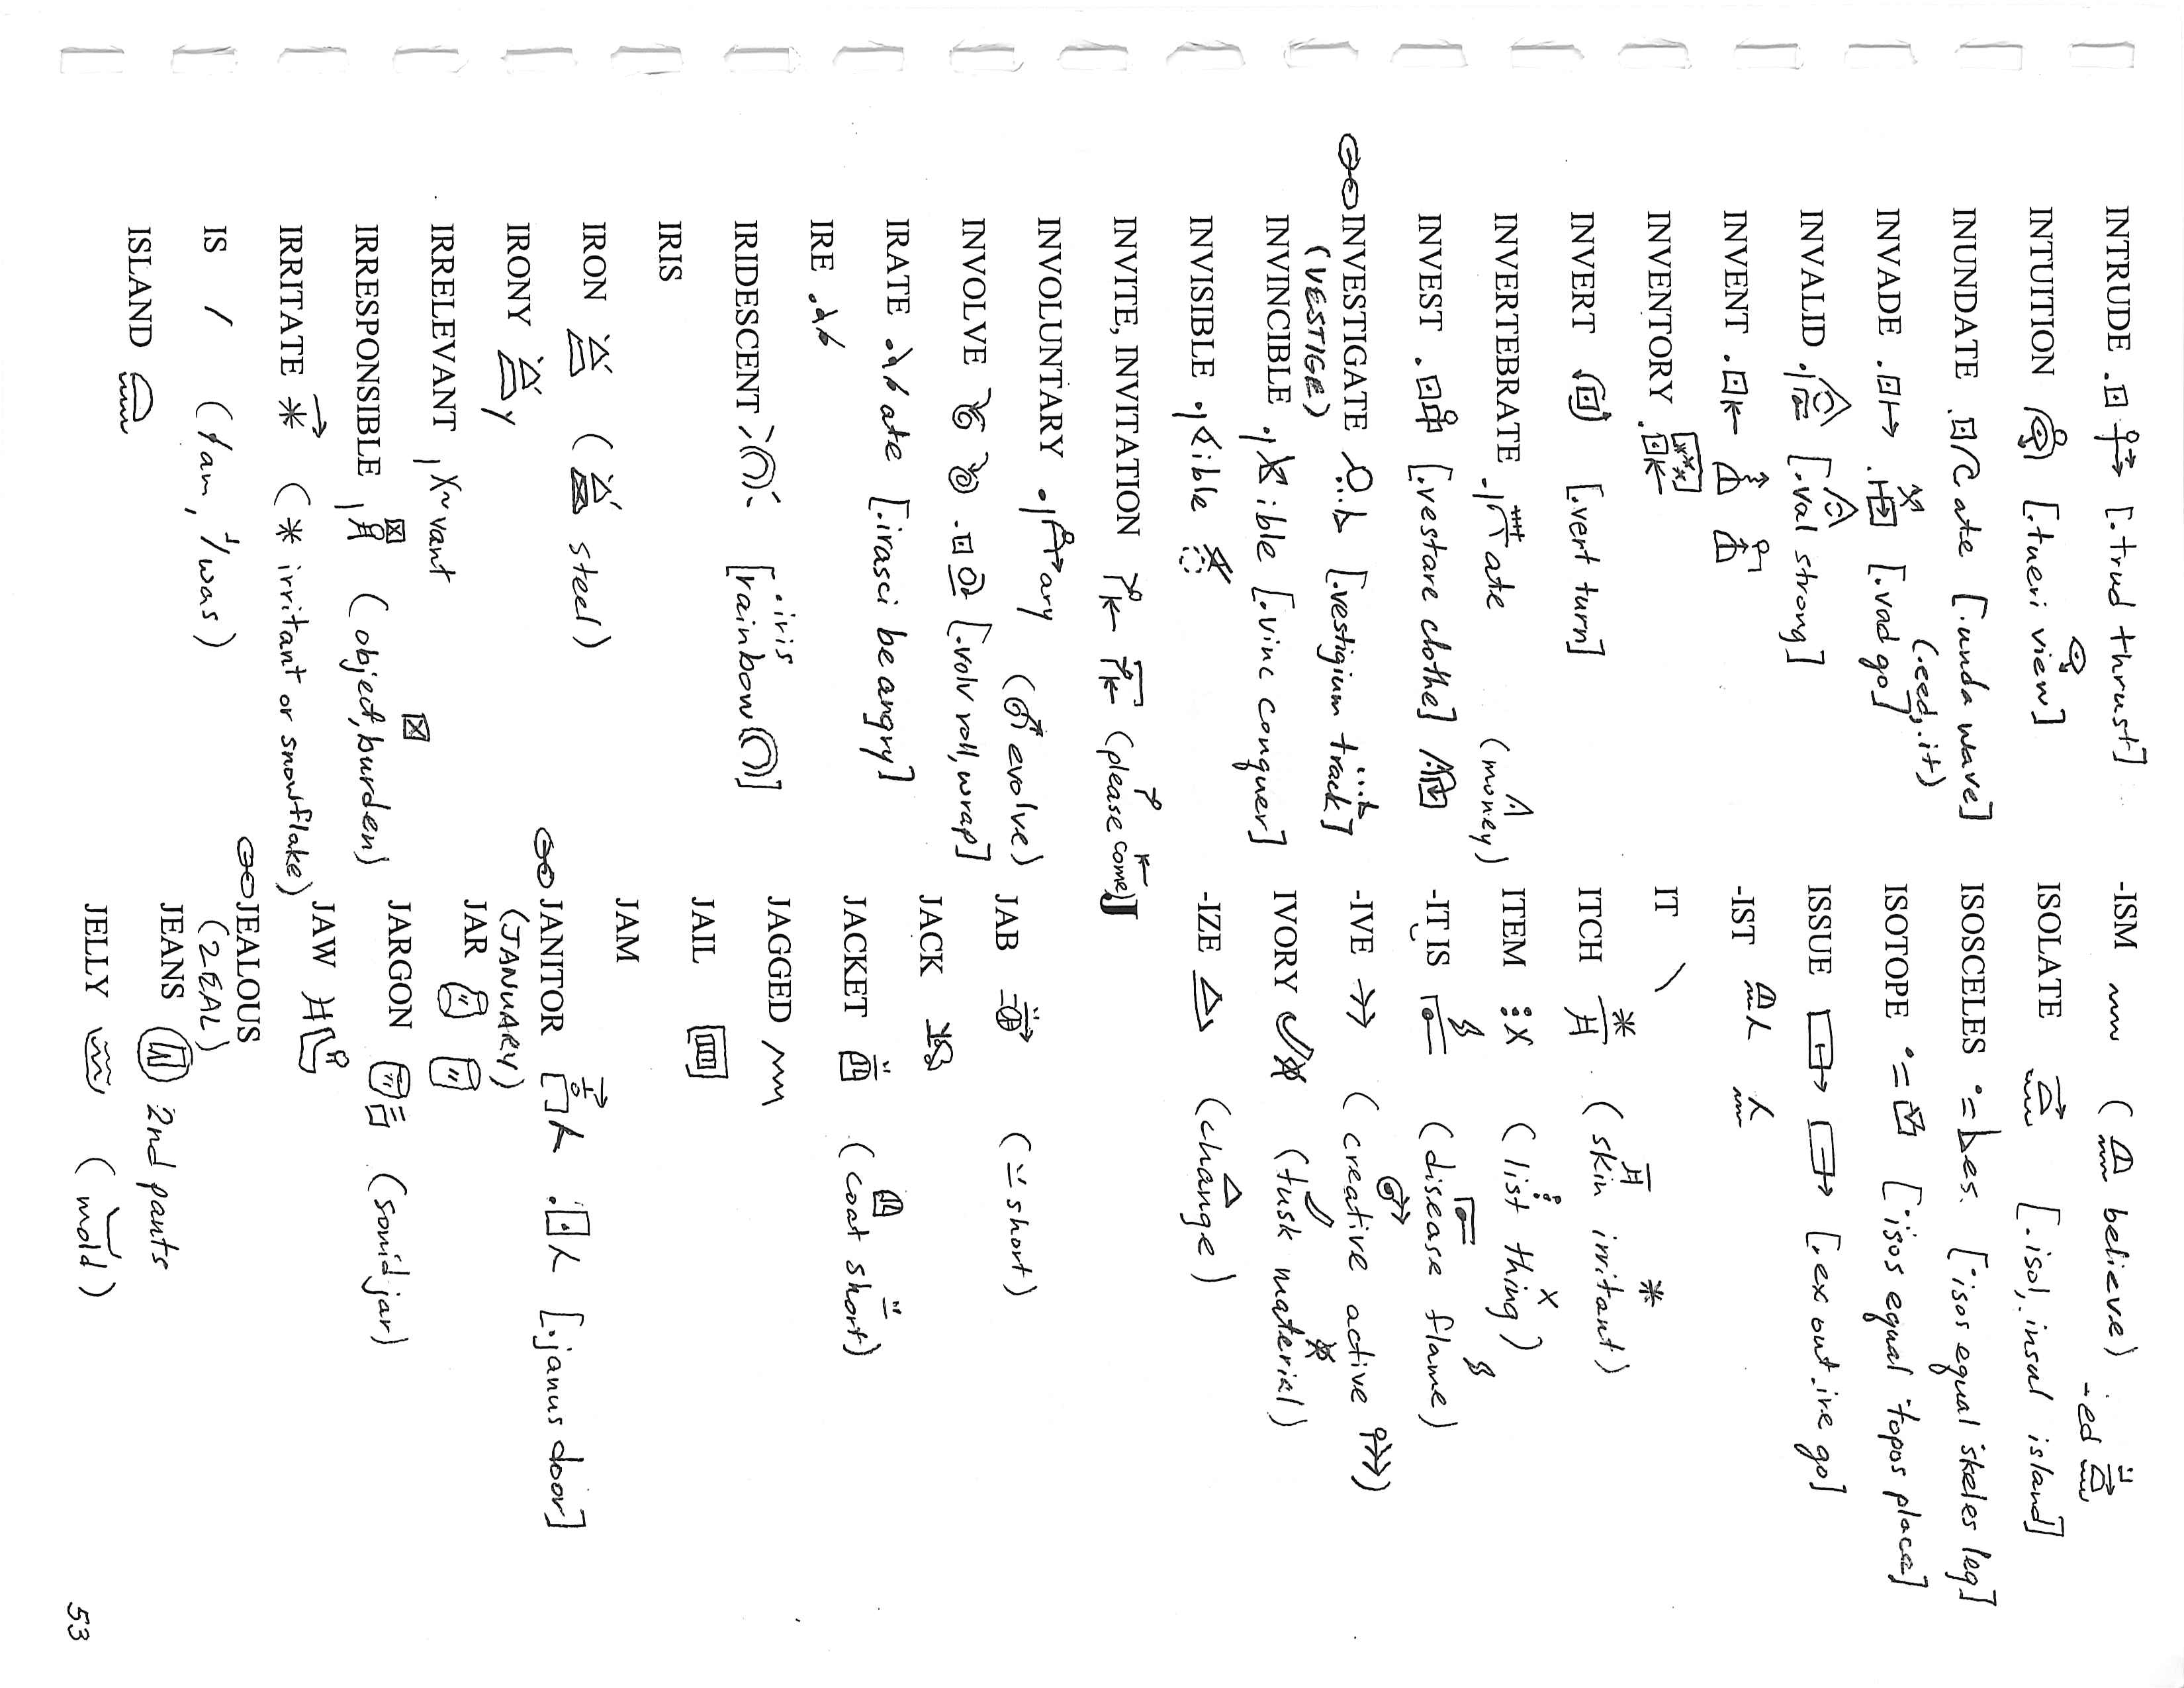 INTRUDE [.trud thrust]
INTUITION [.tueri view]
INUNDATE ate [.unda wave]
(.ced,.it)
INVADE [.vad go]
INVALID [.val strong]
INVENT
INVENTORY
INVERT [.vert turn]
INVERTEBRATE ate
(money)
INVEST [.vestare clothe]
INVESTIGATE [.vestigium track]
(VESTIGE)
INVINCIBLE ible [.vinc conquer]
INVISIBLE ible
INVITE, INVITATION (please come)
INVOLUNTARY ary
(evolve)
INVOLVE [.volv roll, wrap]
IRATE ate [.irasci be angry]
IRE
IRIDESCENT [rainbow]
·iris
IRIS
IRON ( steel)
IRONY
IRRELEVANT vant
IRRESPONSIBLE (object, burden)
IRRITATE (* irritant or snowflake)
IS / (/am, /was)
ISLAND
-ISM ( believe)
-ed
ISOLATE [.isol,.insul island]
ISOSCELES = es. [·isos equal ·skeles leg]
ISOTOPE = [·isos equal ·topos place]
ISSUE [.ex out .ire go]
-IST
IT \
ITCH (skin irritant)
ITEM (list thing)
-IT IS (disease flame)
-IVE (creative active)
IVORY (tusk material)
-IZE (change)
J
JAB (short)
JACK
JACKET (coat short)
JAGGED
JAIL
JAM
JANITOR [.janus door]
(JANUARY)
JAR
JARGON (sound jar)
JAW
JEALOUS
(ZEAL)
JEANS 2nd pants
JELLY (mold)
53